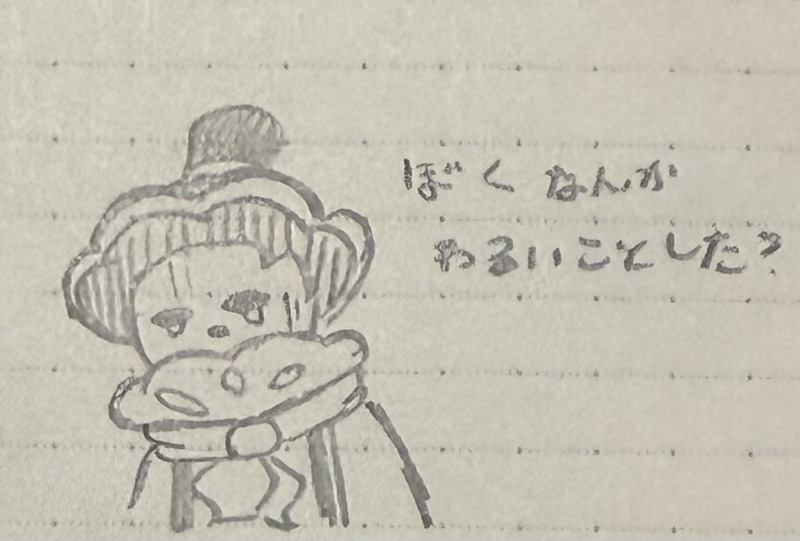 ぼくなんか
わるいことした?